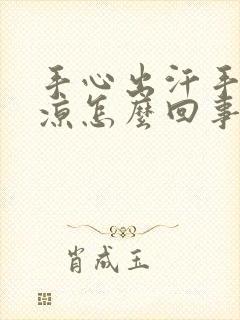 手心出汗手
凉怎麽回事
肖成玉